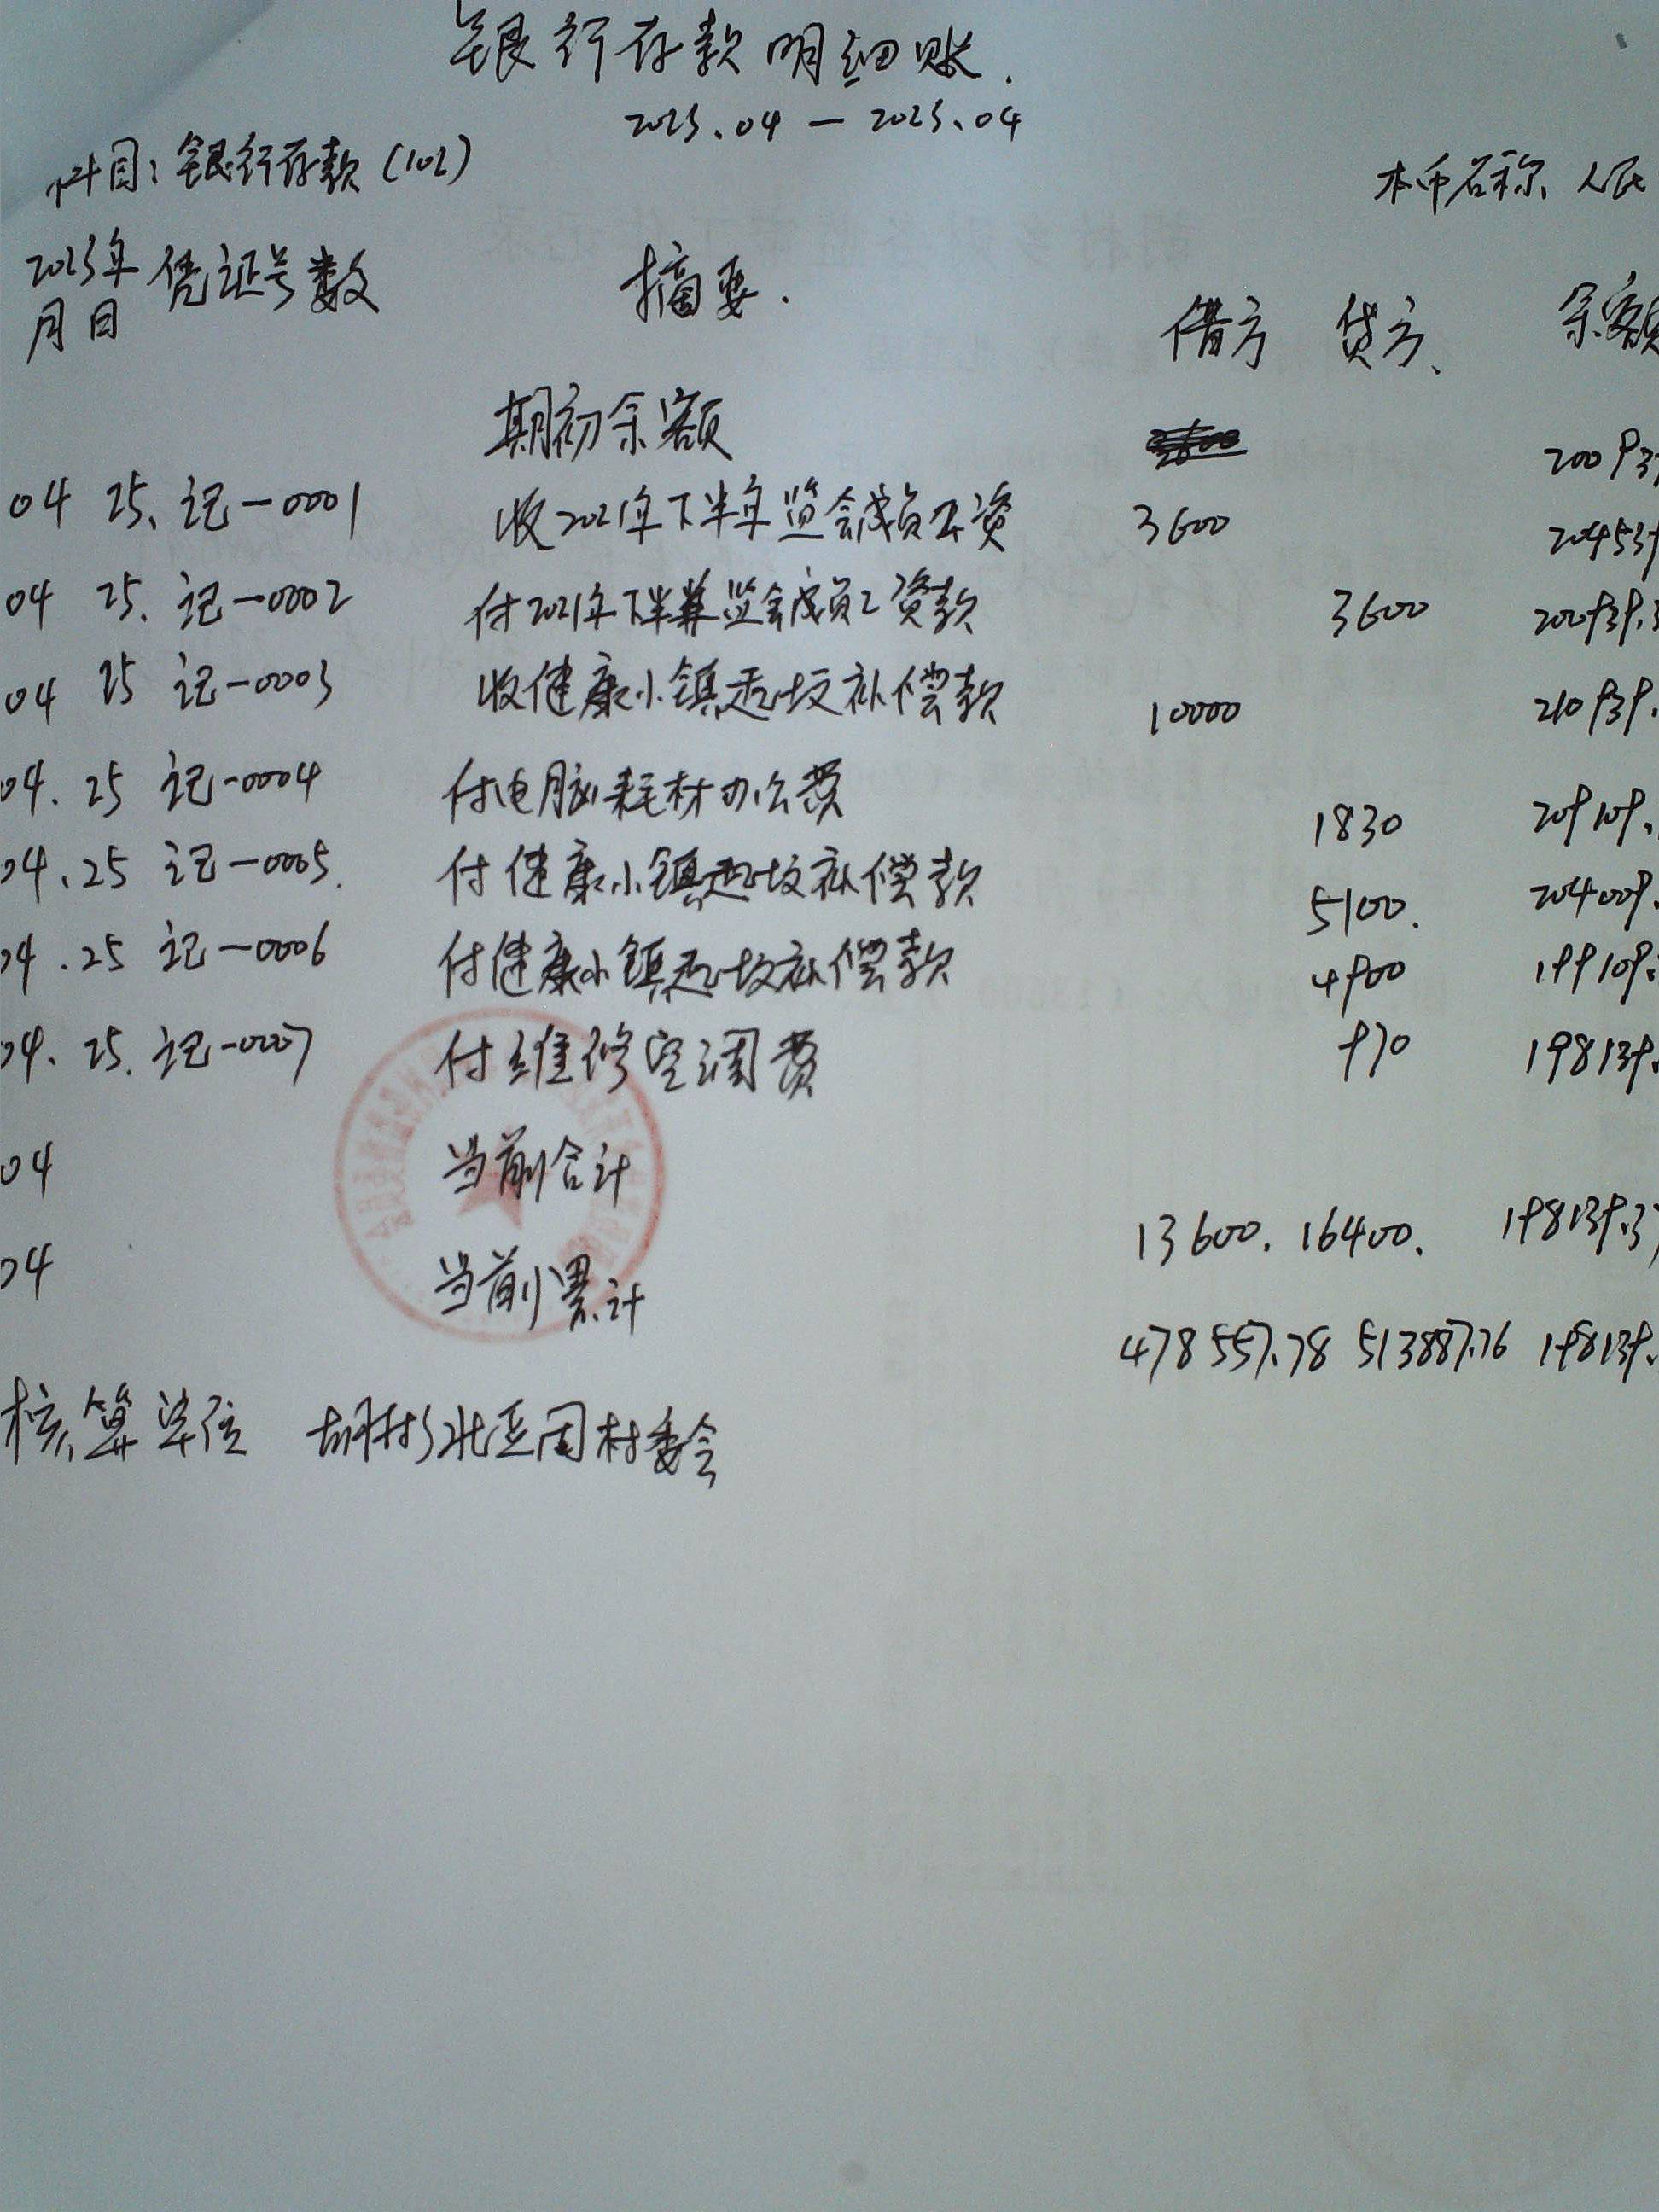 银行存款明细账.
2023.04 — 2023.04
科目: 银行存款 (102) 本币名称、人民
2023年 凭证号数 摘要. 借方 贷方、 余额
月日
期初余额 20093
04 25、记-0001 收2021年下半年监会成员工资 3600 20453
04 25. 记-0002 付2021年下半年监会成员工资款 3600 200939.3
04 25 记-0003 收健康小镇起坟补偿款 10000 210939.
04. 25 记-0004 付电脑耗材办公费 1830 209109.
04. 25 记-0005. 付健康小镇起坟补偿款 5100. 204009.
04. 25 记-0006 付健康小镇起坟补偿款 4900 199109.
04. 25. 记-0007 付维修空调费 970 198139.
04 当前合计 13600. 16400. 198139.37
04 当前累计 478557.78 513887.76 198139.
核算单位 胡村乡北 周村委会